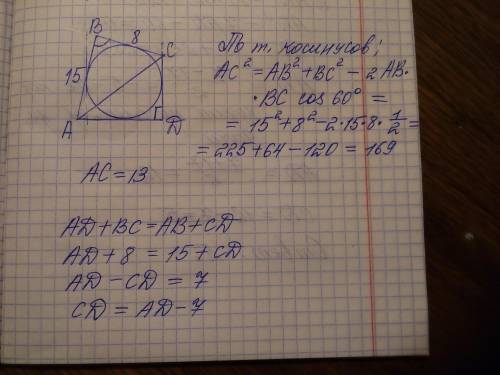 B
8
C
15
A
D
По т. косинусов;
AC² = AB² + BC² - 2AB·
·BC cos 60° =
= 15² + 8² - 2·15·8·1/2 =
= 225 + 64 - 120 = 169
AC = 13
AD + BC = AB + CD
AD + 8 = 15 + CD
AD - CD = 7
CD = AD - 7